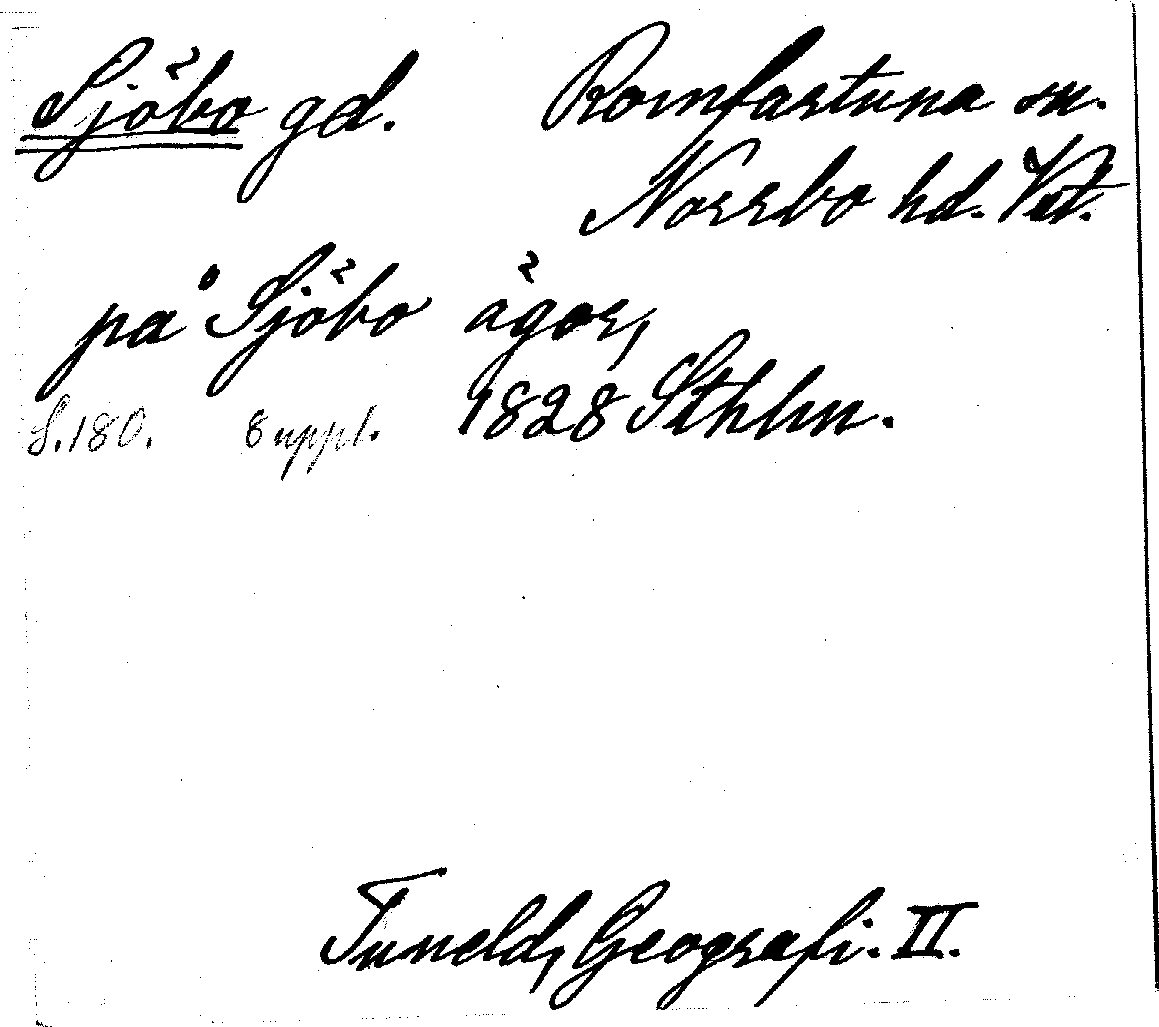 Sjöbo gd. Romfartuna sn.
Norrbo hd. Vstm.
på Sjöbo ägor,
S. 180. 8 uppl. 1828 Sthlm.
Tuneld, Geografi. II.